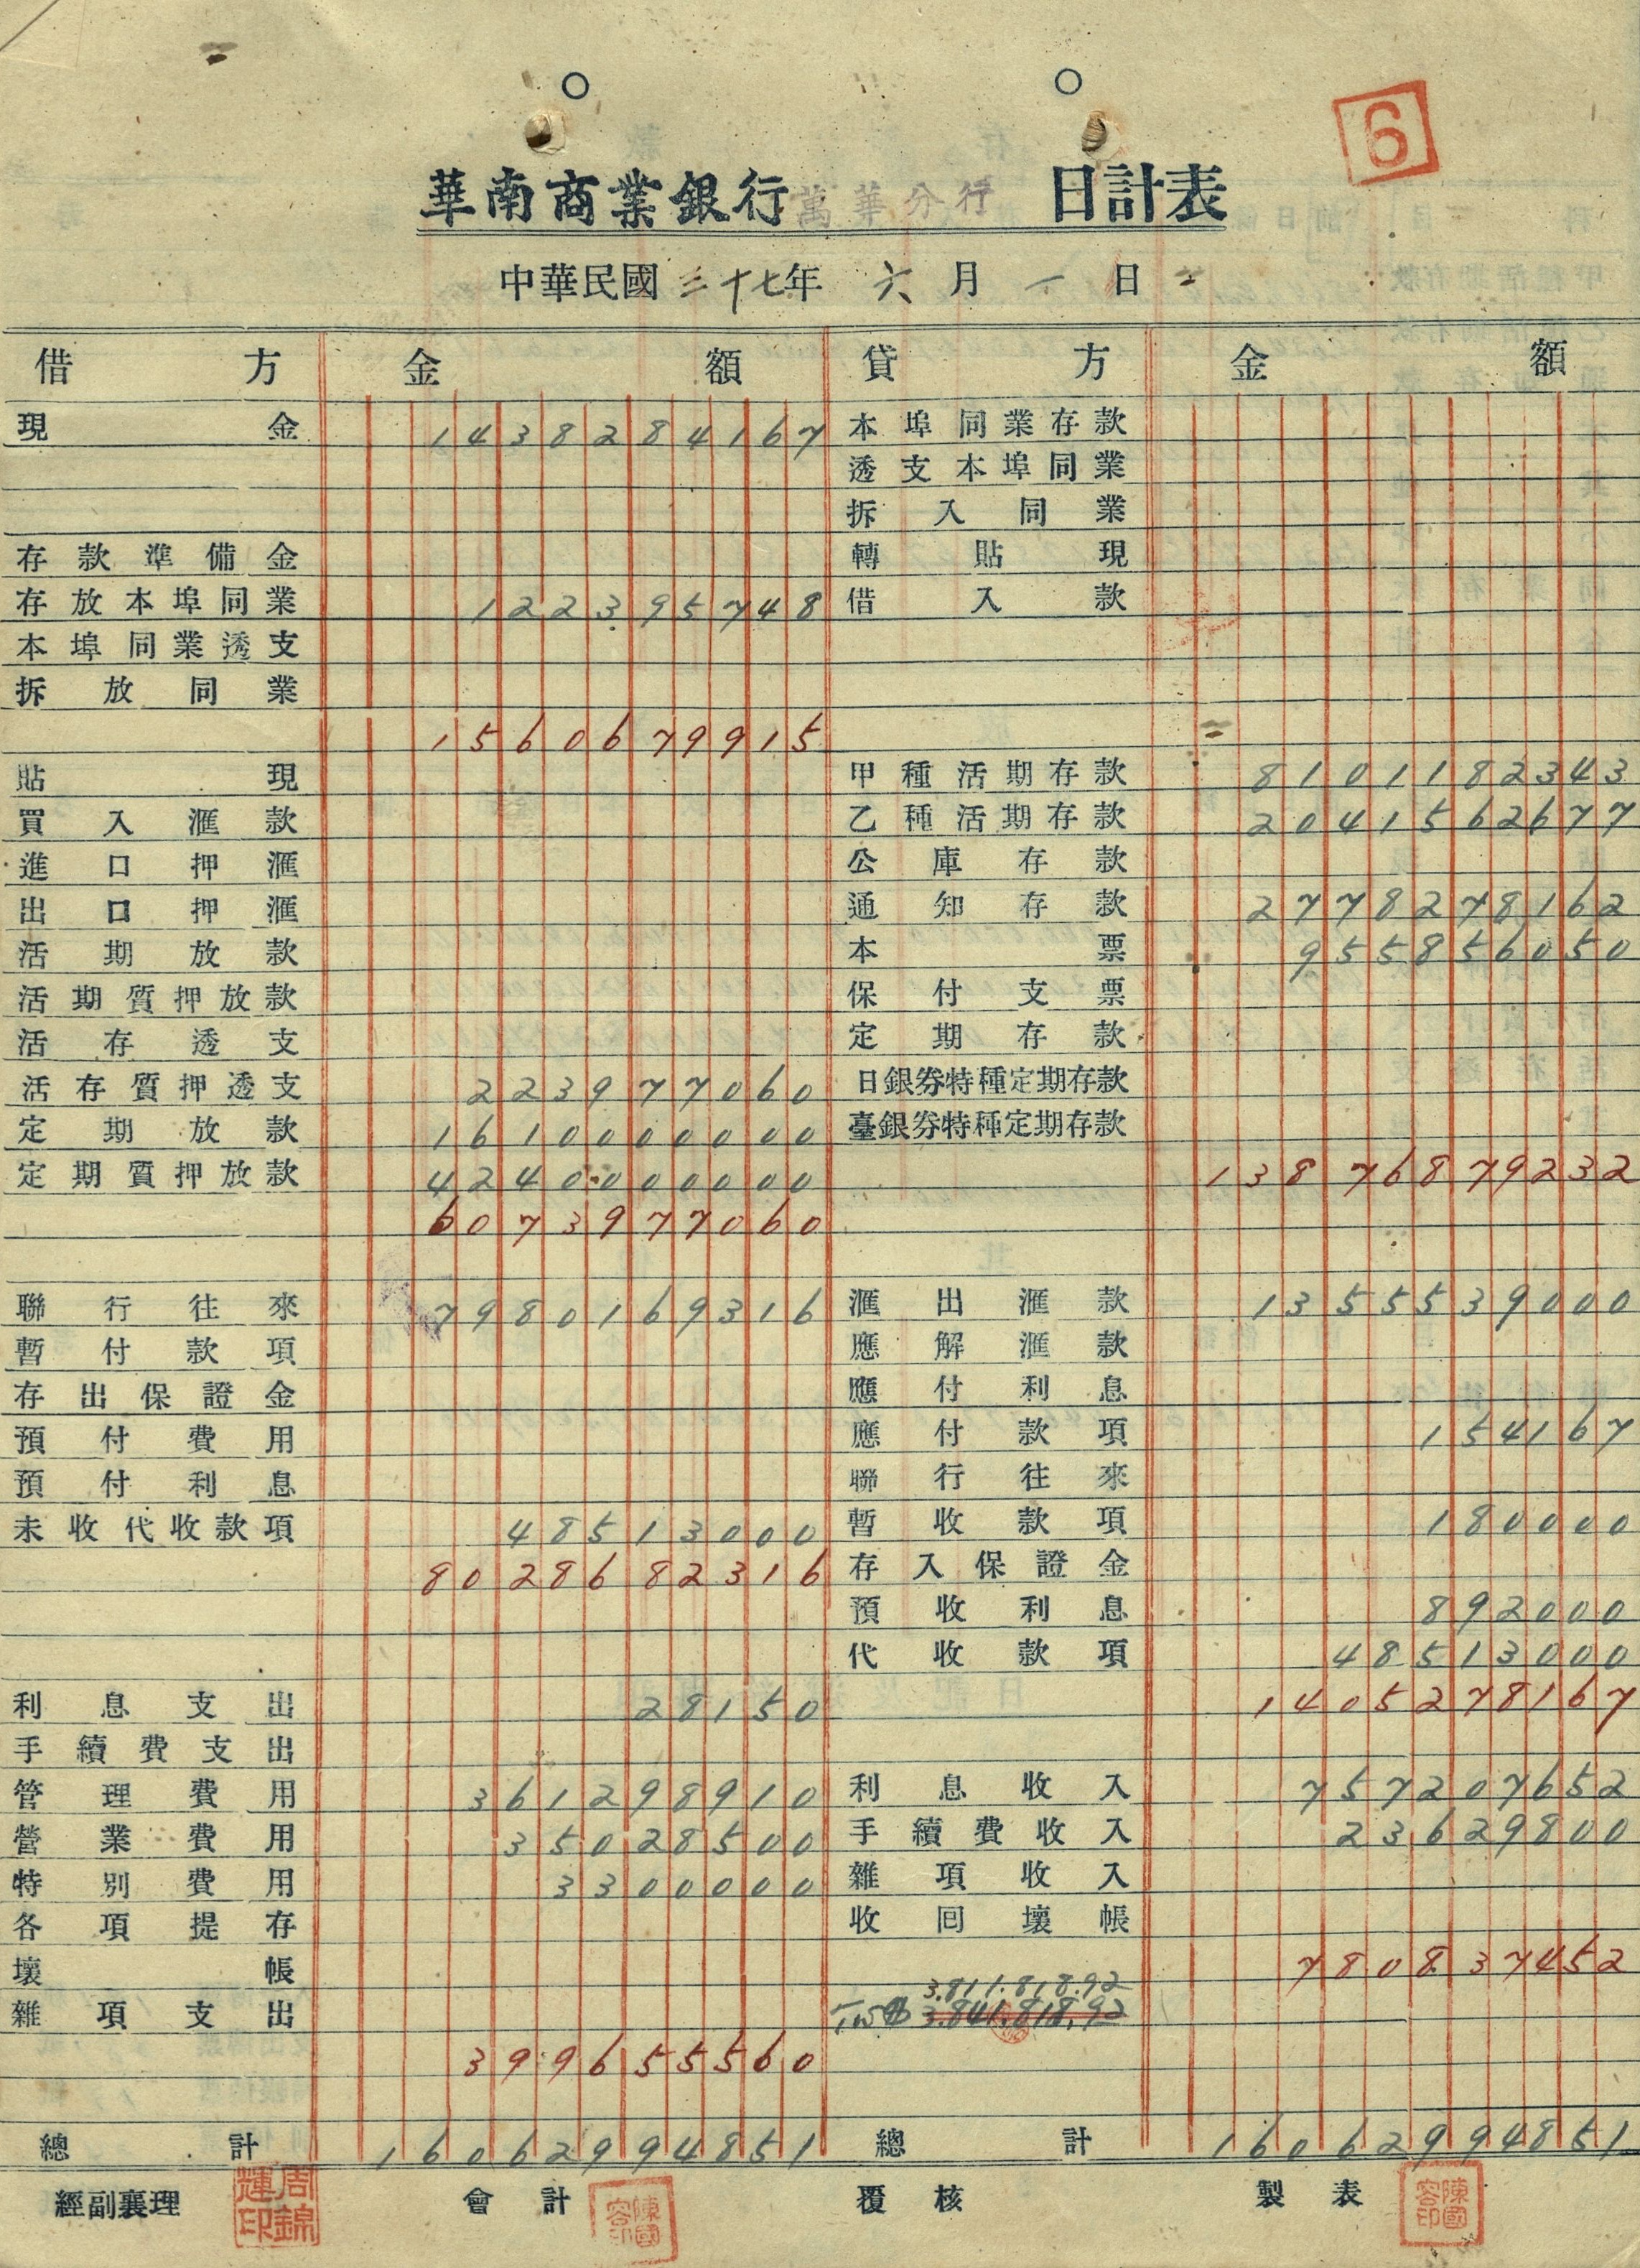 6
華南商業銀行 萬華分行 日計表
中華民國三十七年 六月一日
借方 金額 貸方 金額
現金 1438284167 本埠同業存款
透支本埠同業
拆入同業
存款準備金 轉貼現
存放本埠同業 122395748 借入款
本埠同業透支
拆放同業
1560679915
貼現 甲種活期存款 8101182343
買入滙款 乙種活期存款 2041562677
進口押滙 公庫存款
出口押滙 通知存款 2778278162
活期放款 本票 955856050
活期質押放款 保付支票
活存透支 定期存款
活存質押透支 223977060 日銀券特種定期存款
定期放款 1610000000 臺銀券特種定期存款
定期質押放款 4240000000 13876879232
6073977060
聯行往來 7980169316 滙出滙款 1355539000
暫付款項 應解滙款
存出保證金 應付利息
預付費用 應付款項 154167
預付利息 聯行往來
未收代收款項 48513000 暫收款項 180000
8028682316 存入保證金
預收利息 892000
代收款項 48513000
利息支出 28150 1405278167
手續費支出
管理費用 361298910 利息收入 757207652
營業費用 35028500 手續費收入 23629800
特別費用 3300000 雜項收入
各項提存 收回壞帳
壞帳 780837452
3.811.818.92
雜項支出 3.841.818.92
399655560
總計 16062994851 總計 16062994851
經副襄理 周錦輝印 會計 陳國容印 覆核 製表 陳國容印